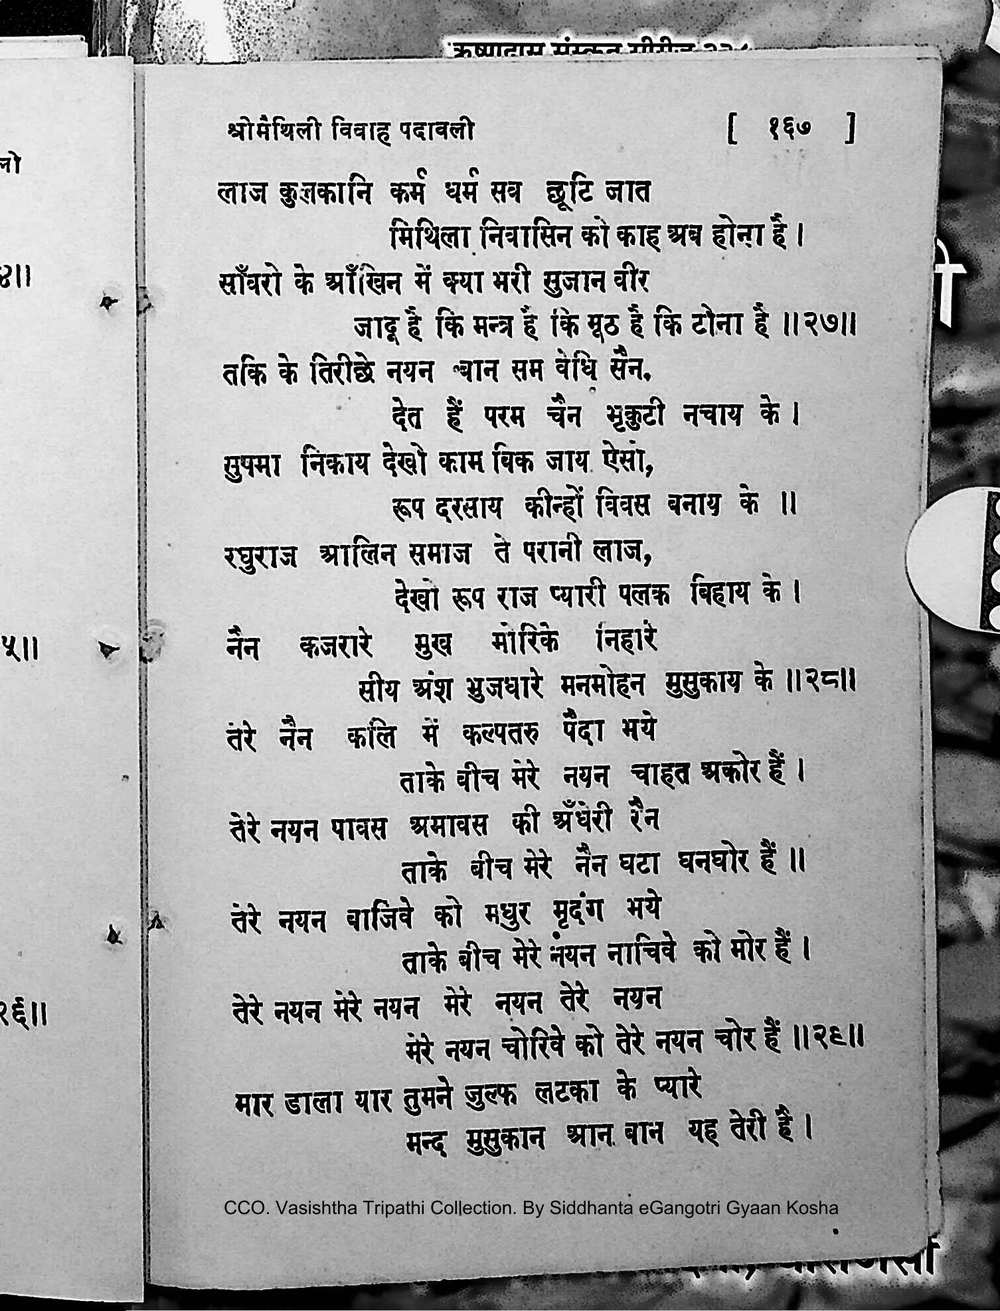 कृष्णदास संस्कृत सीरीज
श्रीमैथिली विवाह पदावली [ १६७ ]
लाज कुलकानि कर्म धर्म सव छूटि जात
मिथिला निवासिन को काह अब होना है ।
साँवरो के आँखिन में क्या भरी सुजान वीर
जादू है कि मन्त्र है कि मूठ है कि टोना है ॥२७॥
तकि के तिरीछे नयन बान सम वेधि सैन,
देत हैं परम चैन भृकुटी नचाय के ।
सुषमा निकाय देखो काम बिक जाय ऐसो,
रूप दरसाय कीन्हों विवस बनाय के ॥
रघुराज आलिन समाज ते परानी लाज,
देखो रूप राज प्यारी पलक बिहाय के ।
नैन कजरारे मुख मोरिके निहारे
सीय अंश भुजधारे मनमोहन मुसुकाय के ॥२८॥
तेरे नैन कलि में कल्पतरु पैदा भये
ताके बीच मेरे नयन चाहत अकोर हैं ।
तेरे नयन पावस अमावस की अँधेरी रैन
ताके बीच मेरे नैन घटा घनघोर हैं ॥
तेरे नयन वाजिवे को मधुर मृदंग भये
ताके बीच मेरे नयन नाचिवे को मोर हैं ।
तेरे नयन मेरे नयन मेरे नयन तेरे नयन
मेरे नयन चोरिवे को तेरे नयन चोर हैं ॥२९॥
मार डाला यार तुमने जुल्फ लटका के प्यारे
मन्द मुसुकान आन बान यह तेरी है ।
CCO. Vasishtha Tripathi Collection. By Siddhanta eGangotri Gyaan Kosha